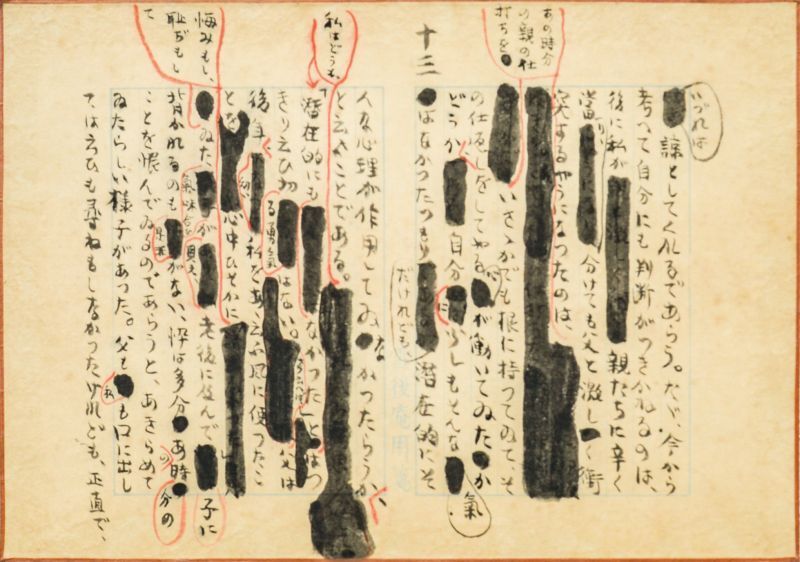 いづれは
諒としてくれるであらう。たゞ、今から
考へて自分にも判断がつきかねるのは、
後に私が親たちに辛く
當り、分けても父と激しく衝
突するやうになつたのは、
あの時分
の親の仕
打ちを
いさゝかでも根に持つてゐて、そ
の仕返しをしてやる心が働いてゐたか
どうか、自分に少しもそんな氣
はなかつたつもりだけれども、潜在的にそ
十三
んな心理が作用してゐなかつたらうか、
と云ふことである。
私はどうも、
「潜在的にもなかつた」とはつ
きり云ひ切る勇氣はない。父は
後年、私をあゝ云ふ風に使つたこ
とを心中ひそかに
悔みもし、
恥ぢもし
て
ゐた氣味合が見え、老後に及んで子に
背かれるのも是非がない、悴は多分あの時分の
ことを恨んでゐるのであらうと、あきらめて
ゐたらしい様子があつた。父も私も口に出し
ては云ひも尋ねもしなかつたけれども、正直で、